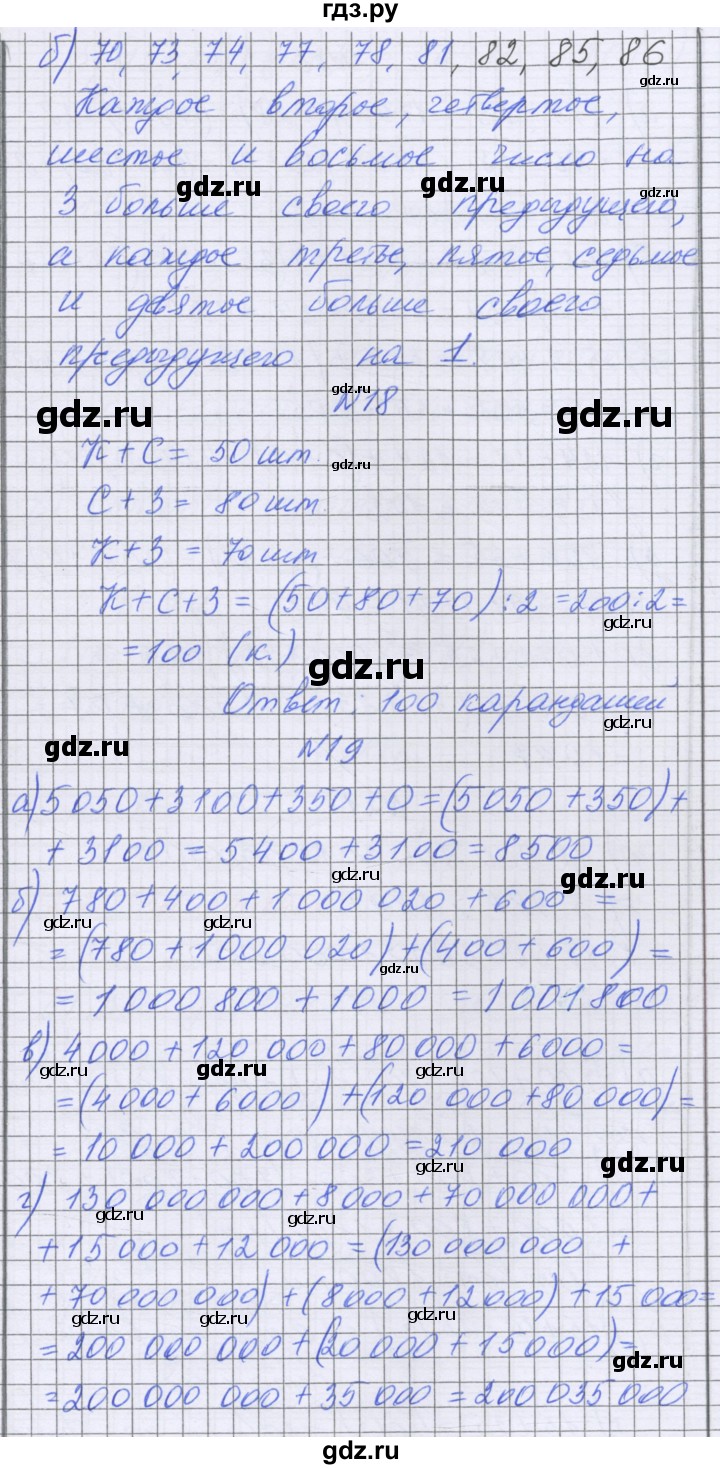 гдз.ру
б) 70, 73, 74, 77, 78, 81, 82, 85, 86
gdz.ru
Каждое второе, четвертое,
шестое и восьмое число на
gdz.ru gdz.ru gdz.ru
3 больше своего предыдущего,
а каждое третье, пятое, седьмое
и девятое больше своего
предыдущего на 1.
gdz.ru
№18
gdz.ru gdz.ru
К + С = 50 шт.
gdz.ru
С + З = 80 шт.
К + З = 70 шт
К + С + З = (50 + 80 + 70) : 2 = 200 : 2 =
gdz.ru
= 100 (к.)
gdz.ru
Ответ: 100 карандашей
gdz.ru
№19
gdz.ru
а) 5 050 + 3 100 + 350 + 0 = (5 050 + 350) +
+ 3 100 = 5 400 + 3 100 = 8 500
gdz.ru gdz.ru
б) 780 + 400 + 1 000 020 + 600 =
gdz.ru gdz.ru
= (780 + 1 000 020) + (400 + 600) =
gdz.ru
= 1 000 800 + 1 000 = 1 001 800
в) 4 000 + 120 000 + 80 000 + 6 000 =
gdz.ru gdz.ru gdz.ru
= (4 000 + 6 000) + (120 000 + 80 000) =
= 10 000 + 200 000 = 210 000
gdz.ru gdz.ru
г) 130 000 000 + 8 000 + 70 000 000 +
gdz.ru gdz.ru
+ 15 000 + 12 000 = (130 000 000 +
+ 70 000 000) + (8 000 + 12 000) + 15 000 =
gdz.ru gdz.ru gdz.ru
= 200 000 000 + (20 000 + 15 000) =
gdz.ru
= 200 000 000 + 35 000 = 200 035 000
gdz.ru